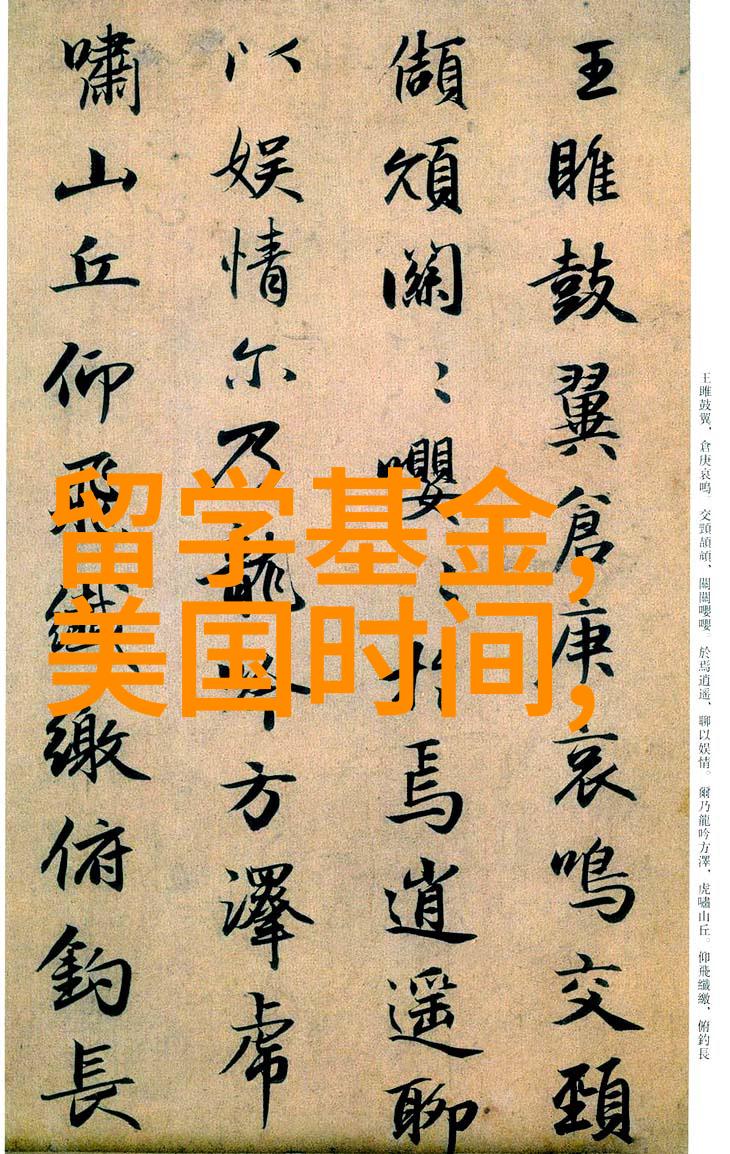 王雎鼓翼倉庚哀鳴交頸
頡頏關〻嚶〻於焉逍遥聊
以娱情尔乃龍吟方澤虎
嘯山丘仰飛纖繳俯釣長
留学基金,
美国时间,
王雎鼓翼、倉庚哀鳴。交頸頡頏、關關嚶嚶。於焉逍遥、聊以娱情。爾乃龍吟方澤、虎嘯山丘。仰飛纖繳、俯釣長